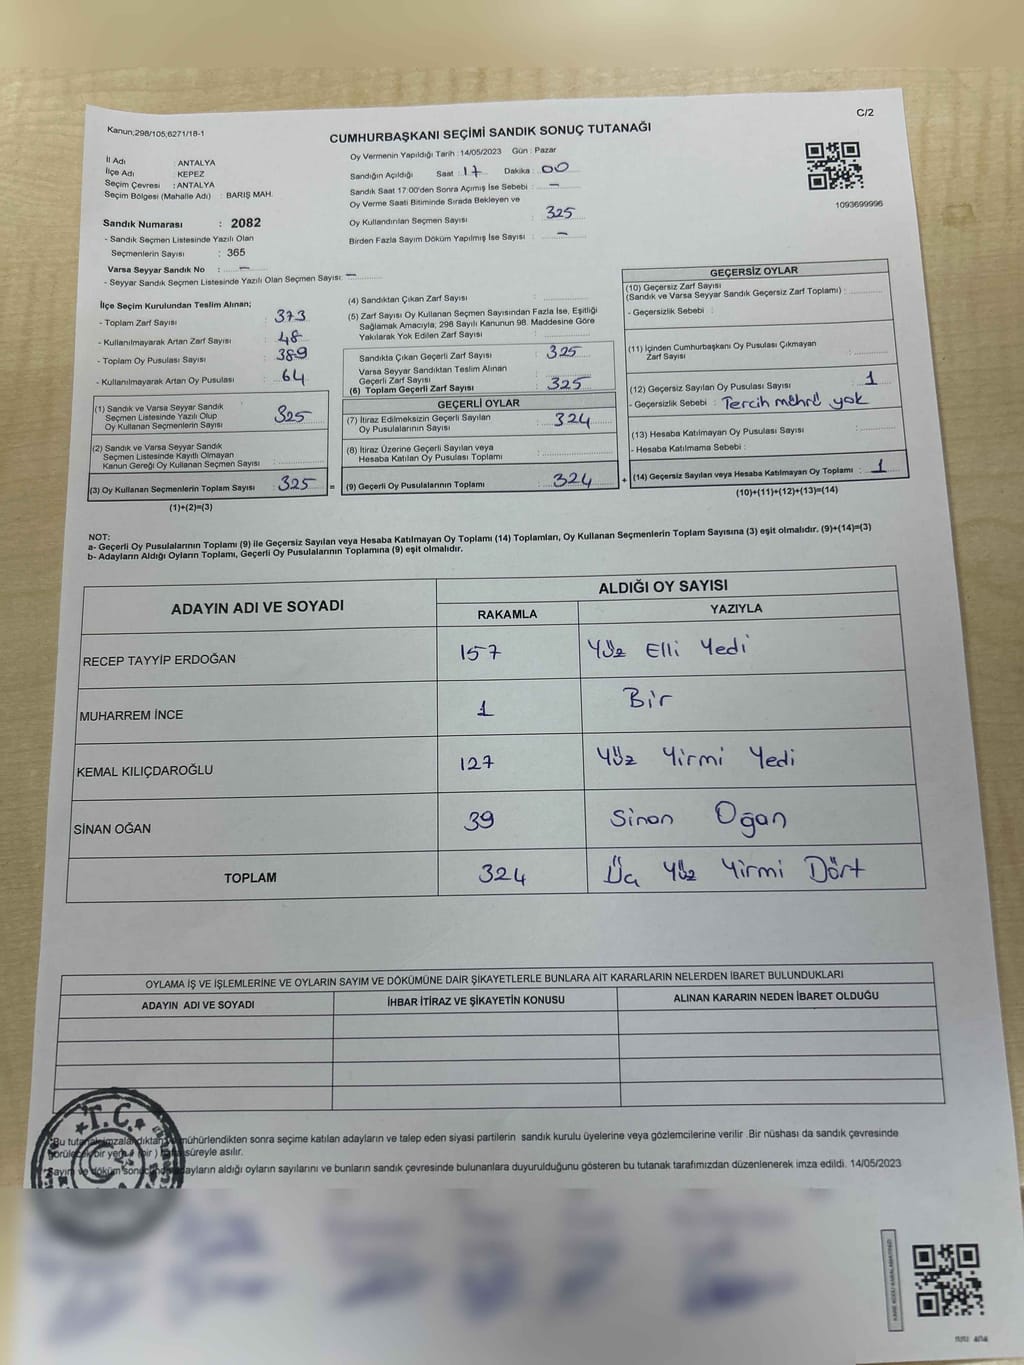 Kanun;298/105;6271/18-1
C/2
CUMHURBAŞKANI SEÇİMİ SANDIK SONUÇ TUTANAĞI
İl Adı : ANTALYA
İlçe Adı KEPEZ
Seçim Çevresi : ANTALYA
Seçim Bölgesi (Mahalle Adı) : BARIŞ MAH.
Oy Vermenin Yapıldığı Tarih : 14/05/2023 Gün : Pazar
Sandığın Açıldığı Saat : 17 Dakika : 00
Sandık Saat 17:00'den Sonra Açımış İse Sebebi : -
Oy Verme Saati Bitiminde Sırada Bekleyen ve
Oy Kullandırılan Seçmen Sayısı : 325
Birden Fazla Sayım Döküm Yapılmış İse Sayısı : -
1093699996
Sandık Numarası : 2082
- Sandık Seçmen Listesinde Yazılı Olan
Seçmenlerin Sayısı : 365
Varsa Seyyar Sandık No : -
- Seyyar Sandık Seçmen Listesinde Yazılı Olan Seçmen Sayısı: -
İlçe Seçim Kurulundan Teslim Alınan;
- Toplam Zarf Sayısı : 373
- Kullanılmayarak Artan Zarf Sayısı : 48
- Toplam Oy Pusulası Sayısı : 389
- Kullanılmayarak Artan Oy Pusulası : 64
(1) Sandık ve Varsa Seyyar Sandık
Seçmen Listesinde Yazılı Olup
Oy Kullanan Seçmenlerin Sayısı : 325
(2) Sandık ve Varsa Seyyar Sandık
Seçmen Listesinde Kayıtlı Olmayan
Kanun Gereği Oy Kullanan Seçmen Sayısı :
(3) Oy Kullanan Seçmenlerin Toplam Sayısı : 325 =
(1)+(2)=(3)
(4) Sandıktan Çıkan Zarf Sayısı :
(5) Zarf Sayısı Oy Kullanan Seçmen Sayısından Fazla İse, Eşitliği
Sağlamak Amacıyla, 298 Sayılı Kanunun 98. Maddesine Göre
Yakılarak Yok Edilen Zarf Sayısı :
Sandıkta Çıkan Geçerli Zarf Sayısı : 325
Varsa Seyyar Sandıktan Teslim Alınan
Geçerli Zarf Sayısı :
(6) Toplam Geçerli Zarf Sayısı : 325
GEÇERLİ OYLAR
(7) İtiraz Edilmeksizin Geçerli Sayılan
Oy Pusulalarının Sayısı : 324
(8) İtiraz Üzerine Geçerli Sayılan veya
Hesaba Katılan Oy Pusulası Toplamı :
(9) Geçerli Oy Pusulalarının Toplamı : 324 +
GEÇERSİZ OYLAR
(10) Geçersiz Zarf Sayısı
(Sandık ve Varsa Seyyar Sandık Geçersiz Zarf Toplamı) :
- Geçersizlik Sebebi :
(11) İçinden Cumhurbaşkanı Oy Pusulası Çıkmayan
Zarf Sayısı :
(12) Geçersiz Sayılan Oy Pusulası Sayısı : 1
- Geçersizlik Sebebi : Tercih mührü yok
(13) Hesaba Katılmayan Oy Pusulası Sayısı :
- Hesaba Katılmama Sebebi :
(14) Geçersiz Sayılan veya Hesaba Katılmayan Oy Toplamı : 1
(10)+(11)+(12)+(13)=(14)
NOT:
a- Geçerli Oy Pusulalarının Toplamı (9) ile Geçersiz Sayılan veya Hesaba Katılmayan Oy Toplamı (14) Toplamları, Oy Kullanan Seçmenlerin Toplam Sayısına (3) eşit olmalıdır. (9)+(14)=(3)
b- Adayların Aldığı Oyların Toplamı, Geçerli Oy Pusulalarının Toplamına (9) eşit olmalıdır.
ADAYIN ADI VE SOYADI
ALDIĞI OY SAYISI
RAKAMLA YAZIYLA
RECEP TAYYİP ERDOĞAN 157 Yüz Elli Yedi
MUHARREM İNCE 1 Bir
KEMAL KILIÇDAROĞLU 127 Yüz Yirmi Yedi
SİNAN OĞAN 39 Sinan Oğan
TOPLAM 324 Üç Yüz Yirmi Dört
OYLAMA İŞ VE İŞLEMLERİNE VE OYLARIN SAYIM VE DÖKÜMÜNE DAİR ŞİKAYETLERLE BUNLARA AİT KARARLARIN NELERDEN İBARET BULUNDUKLARI
ADAYIN ADI VE SOYADI İHBAR İTİRAZ VE ŞİKAYETİN KONUSU ALINAN KARARIN NEDEN İBARET OLDUĞU
T.C.
Bu tutanak imzalandıktan ve mühürlendikten sonra seçime katılan adayların ve talep eden siyasi partilerin sandık kurulu üyelerine veya gözlemcilerine verilir. Bir nüshası da sandık çevresinde
görülecek bir yere 1 (bir) hafta süreyle asılır.
Sayım ve döküm sonucunda adayların aldığı oyların sayılarını ve bunların sandık çevresinde bulunanlara duyurulduğunu gösteren bu tutanak tarafımızdan düzenlenerek imza edildi. 14/05/2023